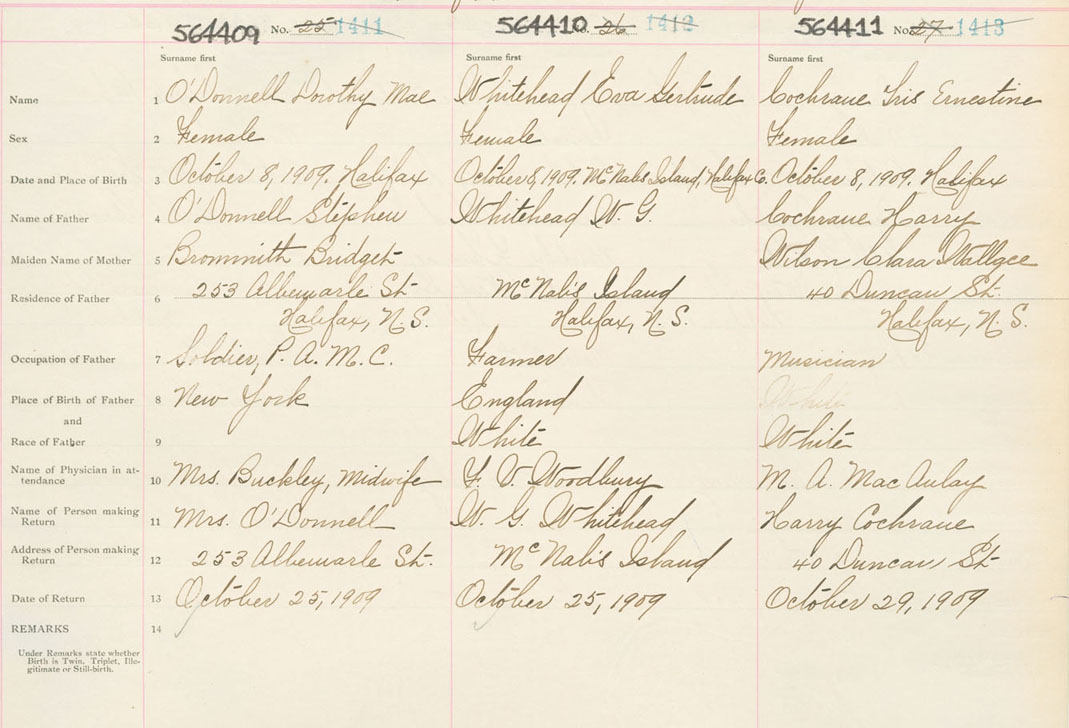 564409 No. 25 1411 564410 No. 26 1412 564411 No. 27 1413
Surname first Surname first Surname first
Name 1 O'Donnell Dorothy Mae Whitehead Eva Gertrude Cochrane Iris Ernestine
Sex 2 Female Female Female
Date and Place of Birth 3 October 8, 1909. Halifax October 8, 1909. McNabs Island, Halifax Co. October 8, 1909. Halifax
Name of Father 4 O'Donnell Stephen Whitehead W. G. Cochrane Harry
Maiden Name of Mother 5 Bridget Wilson Clara Wallace
Residence of Father 6 253 Albemarle St. McNabs Island 40 Duncan St.
Halifax, N.S. Halifax, N.S. Halifax, N.S.
Occupation of Father 7 Soldier, P. A. M. C. Farmer Musician
Place of Birth of Father 8 New York England White
and
Race of Father 9 White White
Name of Physician in at-
tendance 10 Mrs. Buckley, Midwife Woodbury M. A. MacAulay
Name of Person making
Return 11 Mrs. O'Donnell W. G. Whitehead Harry Cochrane
Address of Person making
Return 12 253 Albemarle St. McNabs Island 40 Duncan St.
Date of Return 13 October 25, 1909 October 25, 1909 October 29, 1909
REMARKS 14
Under Remarks state whether
Birth is Twin. Triplet, Ille-
gitimate or Still-birth.